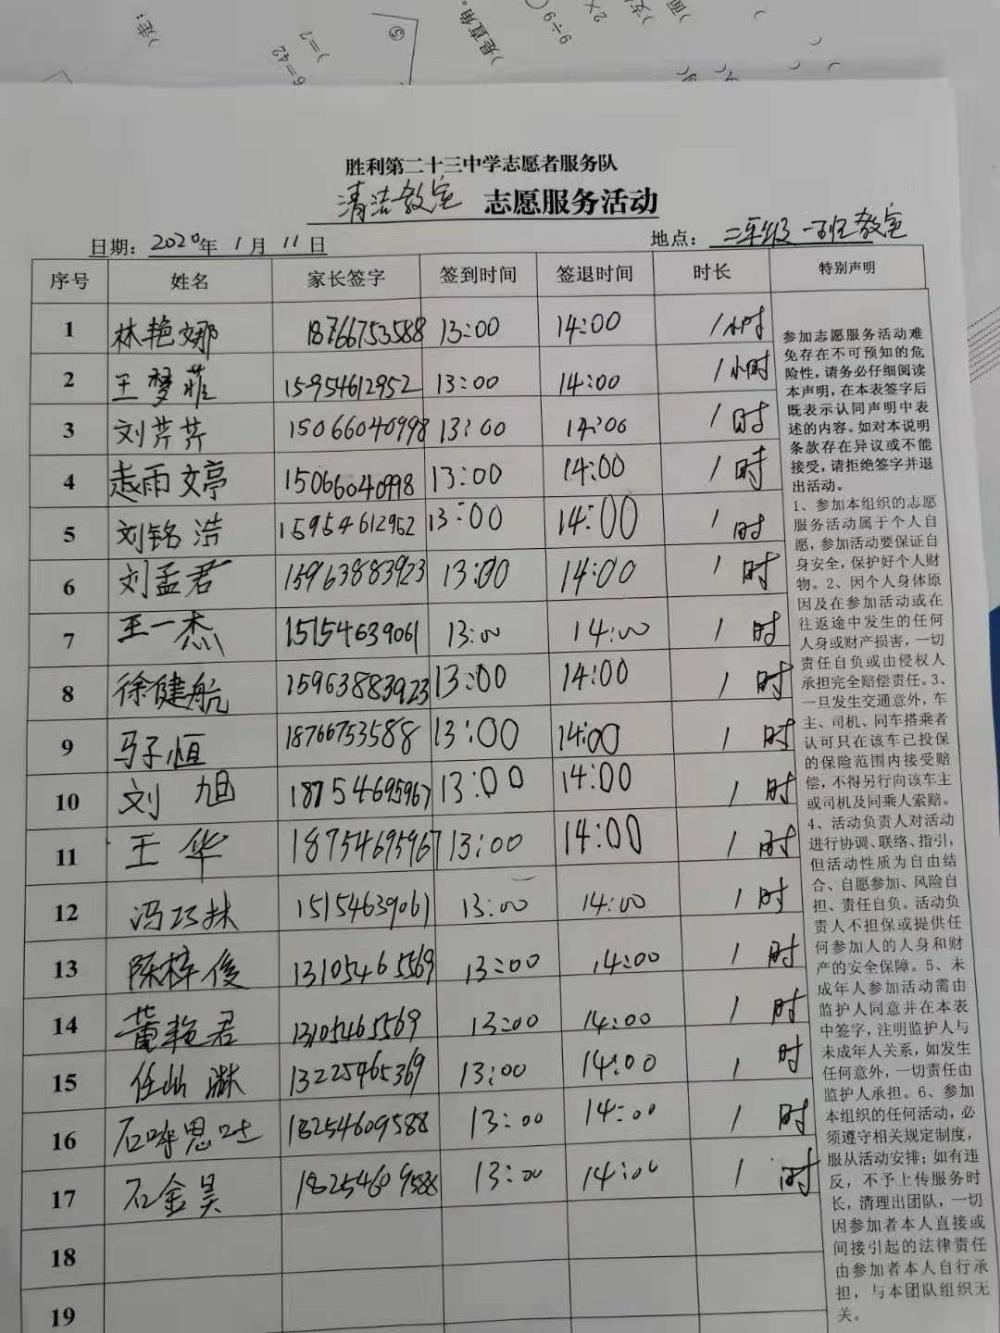 胜利第二十三中学志愿者服务队
清洁教室 志愿服务活动
日期：2020年 1月 11日 地点：二年级一班教室
序号 姓名 家长签字 签到时间 签退时间 时长 特别声明
1 林艳娜 18766753588 13:00 14:00 1小时
2 王梦菲 15954612952 13:00 14:00 1小时
3 刘芹芹 15066040998 13:00 14:00 1时
4 赵雨文亭 15066040998 13:00 14:00 1时
5 刘铭浩 15954612952 13:00 14:00 1时
6 刘孟君 15963883923 13:00 14:00 1时
7 王一杰 15154639061 13:00 14:00 1时
8 徐健航 15963883923 13:00 14:00 1时
9 马子恒 18766753588 13:00 14:00 1时
10 刘旭 18754695967 13:00 14:00 1时
11 王华 18754695967 13:00 14:00 1时
12 冯巧林 15154639061 13:00 14:00 1时
13 陈梓俊 13105465569 13:00 14:00 1时
14 董艳君 13105465569 13:00 14:00 1时
15 13225465369 13:00 14:00 1时
16 18254609588 13:00 14:00 1时
17 石金昊 18254609588 13:00 14:00 1时
18
19
参加志愿服务活动难
免存在不可预知的危
险性，请务必仔细阅读
本声明，在本表签字后
既表示认同声明中表
述的内容。如对本说明
条款存在异议或不能
接受，请拒绝签字并退
出活动。
1、参加本组织的志愿
服务活动属于个人自
愿，参加活动要保证自
身安全，保护好个人财
物。2、因个人身体原
因及在参加活动或在
往返途中发生的任何
人身或财产损害，一切
责任自负或由侵权人
承担完全赔偿责任。3、
一旦发生交通意外，车
主、司机、同车搭乘者
认可只在该车已投保
的保险范围内接受赔
偿，不得另行向该车主
或司机及同乘人索赔。
4、活动负责人对活动
进行协调、联络、指引，
但活动性质为自由结
合、自愿参加、风险自
担、责任自负。活动负
责人不担保或提供任
何参加人的人身和财
产的安全保障。5、未
成年人参加活动需由
监护人同意并在本表
中签字，注明监护人与
未成年人关系，如发生
任何意外，一切责任由
监护人承担。6、参加
本组织的任何活动，必
须遵守相关规定制度，
服从活动安排；如有违
反，不予上传服务时
长，清理出团队，一切
因参加者本人直接或
间接引起的法律责任
由参加者本人自行承
担，与本团队组织无
关。